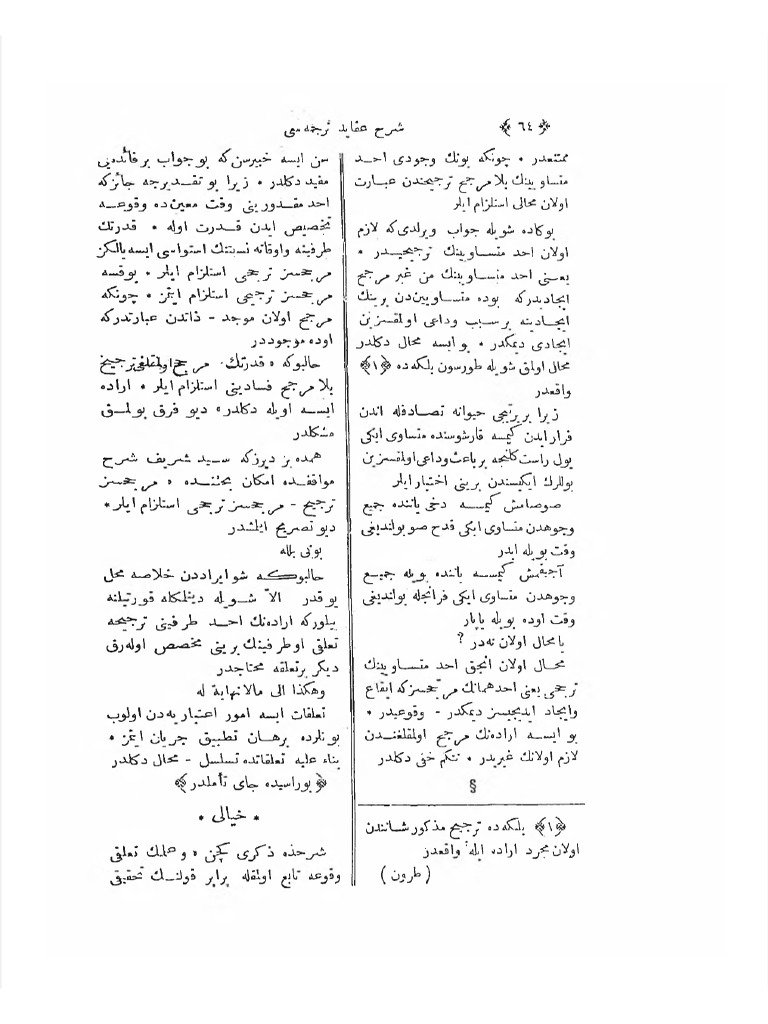 ﴿ ٦٤ ﴾ شرح عقايد ترجمه سی
ممتنعدر • چونكه بونك وجودی احد
متساويينك بلا مرجح ترجيحندن عبارت
اولان محالی استلزام ايلر
بوكاده شويله جواب ويرلدی كه لازم
اولان احد متساويينك ترجيحيدر •
يعنی احد متساويينك من غير مرجح
ايجاديدركه بوده متساوييندن برينك
ايجادينه برسبب وداعی اولمقسزين
ايجادی ديمكدر • بو ايسه محال دكلدر
محال اولمق شويله طورسون بلكه ده ﴿١﴾
واقعدر
زيرا بر يرتيجی حيوانه تصادفله اندن
فرار ايدن كيمسه قارشوسنده متساوی ايكی
يول راست كلنجه برباعث وداعی اولمقسزين
يوللرك ايكيسندن برينی اختيار ايلر
صوصامش كيمسه دخی ياننده جميع
وجوهدن متساوی ايكی قدح صو بولنديغی
وقت بويله ايدر
آجيقمش كيمسه ياننده بويله جميع
وجوهدن متساوی ايكی فرانجله بولنديغی
وقت اوده بويله ياپار
يا محال اولان نه در ؟
محال اولان انجق احد متساويينك
ترجحی يعنی احد همانك مرجحسز كه ايقاع
وايجاد ايديجيسز ديمكدر - وقوعيدر •
بو ايسه اراده نك مرجح اولمقلغندن
لازم اولانك غيريدر • نتكم خفی دكلدر
§
﴿١﴾ بلكه ده ترجيح مذكور شانندن
اولان مجرد اراده ايله واقعدر
( طرون )
سن ايسه خبيرسن كه بو جواب بر فائده يی
مفيد دكلدر • زيرا بو تقديرجه جائز كه
احد مقدورينی وقت معين ده وقوعه
تخصيص ايدن قدرت اوله • قدرتك
طرفينه واوقاته نسبتنك استواسی ايسه يالكز
مرجحسز ترجحی استلزام ايلر • يوقسه
مرجحسز ترجيحی استلزام ايتمز • چونكه
مرجح اولان موجد - ذاتدن عبارتدركه
اوده موجوددر
حالبوكه • قدرتك مرجح اولمقلغی ترجيح
بلا مرجح فسادينی استلزام ايلر • اراده
ايسه اويله دكلدر • ديو فرق بولمق
مشكلدر
همده بز ديرزكه سيد شريف شرح
مواقفده امكان بحثنده • مرجحسز
ترجيح - مرجحسز ترجحی استلزام ايلر •
ديو تصريح ايلشدر
بونی بله
حالبوكه شو ايراددن خلاصه محل
يوقدر الاّ شويله دينلمكله قورتيلنه
بيلوركه اراده نك احد طرفينی ترجيحه
تعلقی او طرفينك برينی مخصص اوله رق
ديكر برتعلقه محتاجدر
وهكذا الی مالانهاية له
تعلقات ايسه امور اعتباريه دن اولوب
بونلرده برهان تطبيق جريان ايتمز •
بناء عليه تعلقاتده تسلسل - محال دكلدر
﴿ بوراسيده جای تأملدر ﴾
• خيالی •
شرحده ذكری كچن • وعملك تعلقی
وقوعه تابع اولمقله برابر قولنك تحقيقی